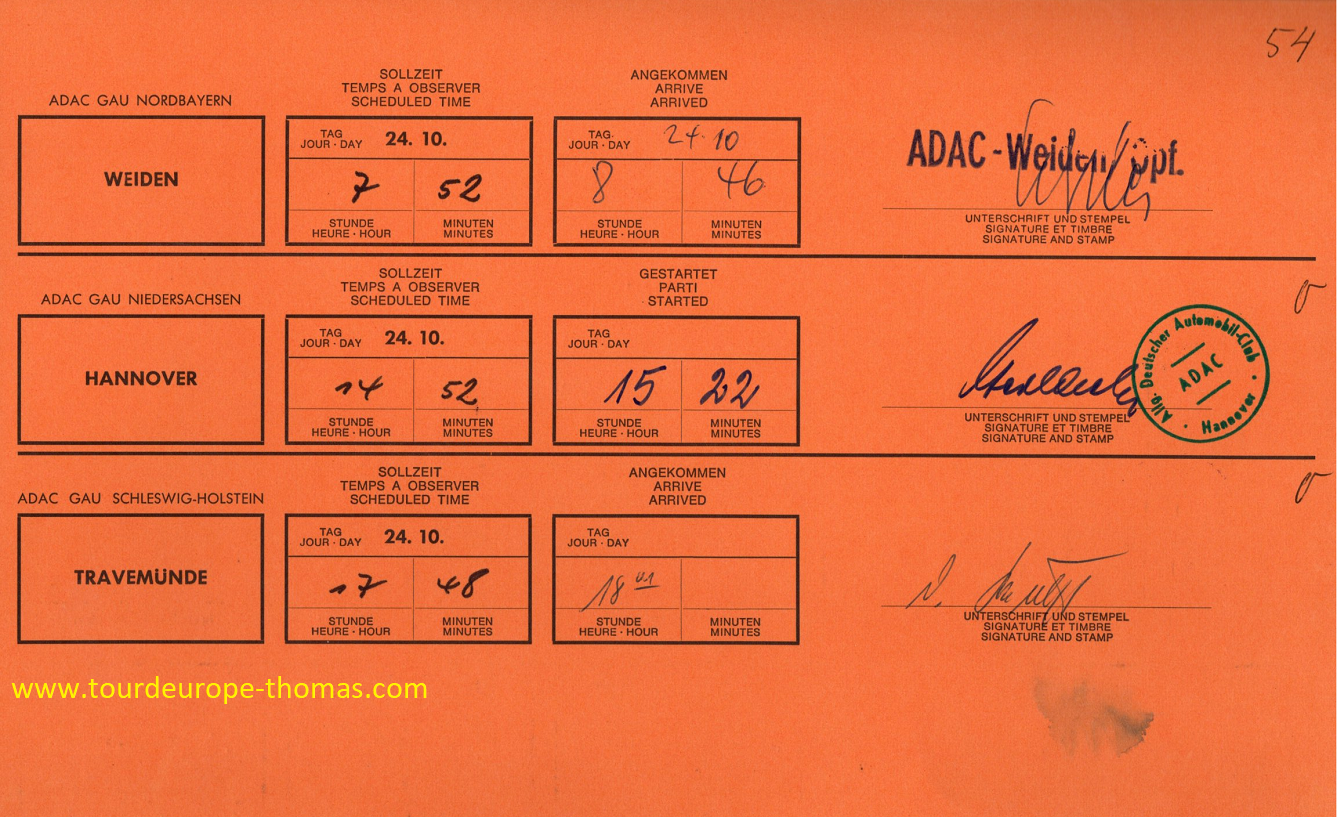 54
SOLLZEIT
TEMPS A OBSERVER
SCHEDULED TIME
ANGEKOMMEN
ARRIVE
ARRIVED
ADAC GAU NORDBAYERN
WEIDEN
TAG
JOUR · DAY
24. 10.
7 52
STUNDE
HEURE · HOUR
MINUTEN
MINUTES
TAG
JOUR · DAY
24. 10
8 46
STUNDE
HEURE · HOUR
MINUTEN
MINUTES
ADAC - Weiden/Opf.
UNTERSCHRIFT UND STEMPEL
SIGNATURE ET TIMBRE
SIGNATURE AND STAMP
SOLLZEIT
TEMPS A OBSERVER
SCHEDULED TIME
GESTARTET
PARTI
STARTED
ADAC GAU NIEDERSACHSEN
HANNOVER
TAG
JOUR · DAY
24. 10.
14 52
STUNDE
HEURE · HOUR
MINUTEN
MINUTES
TAG
JOUR · DAY
15 22
STUNDE
HEURE · HOUR
MINUTEN
MINUTES
Allg. Deutscher Automobil-Club
ADAC
Hannover
UNTERSCHRIFT UND STEMPEL
SIGNATURE ET TIMBRE
SIGNATURE AND STAMP
SOLLZEIT
TEMPS A OBSERVER
SCHEDULED TIME
ANGEKOMMEN
ARRIVE
ARRIVED
ADAC GAU SCHLESWIG-HOLSTEIN
TRAVEMÜNDE
TAG
JOUR · DAY
24. 10.
17 48
STUNDE
HEURE · HOUR
MINUTEN
MINUTES
TAG
JOUR · DAY
18 01
STUNDE
HEURE · HOUR
MINUTEN
MINUTES
UNTERSCHRIFT UND STEMPEL
SIGNATURE ET TIMBRE
SIGNATURE AND STAMP
www.tourdeurope-thomas.com